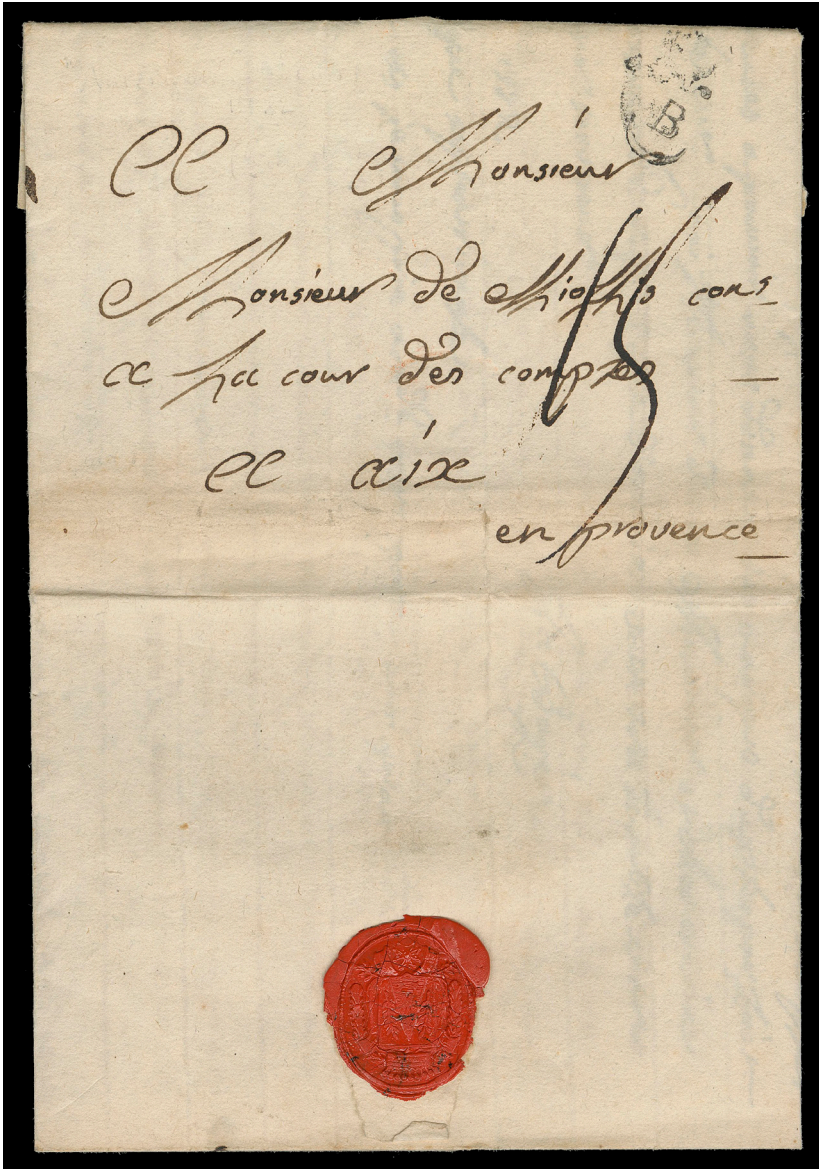 B
A Monsieur
Monsieur de Miollis cons
a La cour des comptes
15
A aix
en provence